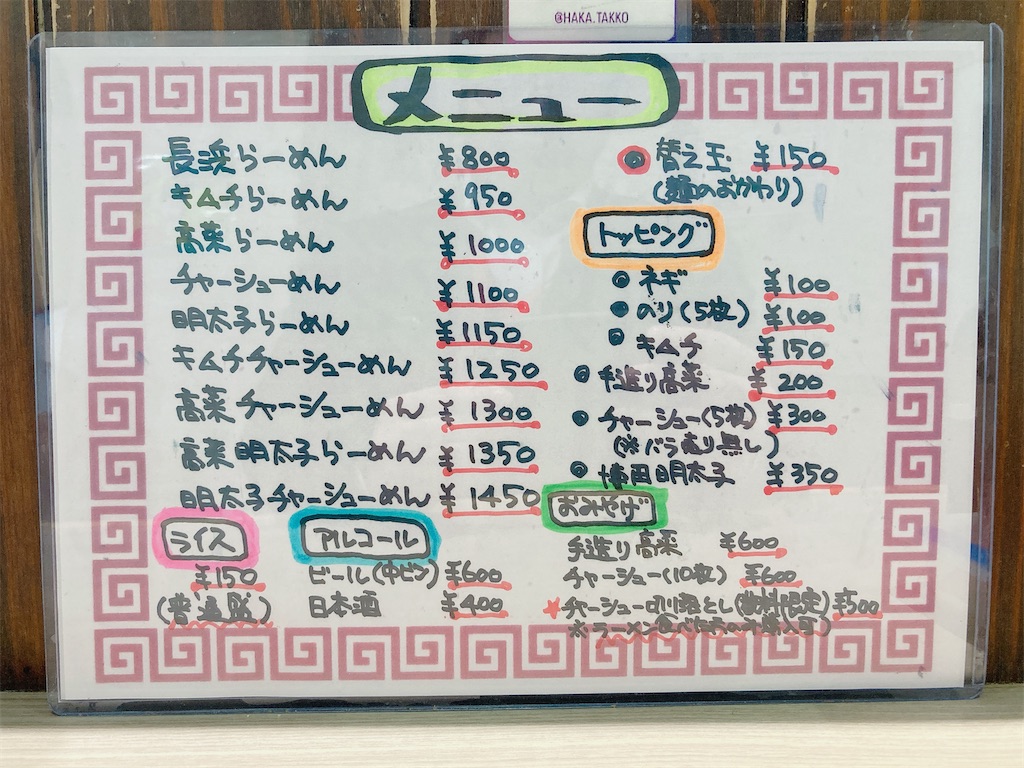 @HAKA.TAKKO
メニュー
長浜らーめん ¥800
キムチらーめん ¥950
高菜らーめん ¥1000
チャーシューめん ¥1100
明太子らーめん ¥1150
キムチチャーシューめん ¥1250
高菜チャーシューめん ¥1300
高菜明太子らーめん ¥1350
明太子チャーシューめん ¥1450
ライス
¥150
(普通盛)
アルコール
ビール(中ビン) ¥600
日本酒 ¥400
替え玉 ¥150
(麺のおかわり)
トッピング
ネギ ¥100
のり(5枚) ¥100
キムチ ¥150
手造り高菜 ¥200
チャーシュー(5枚) ¥300
(※バラ売り無し)
博多明太子 ¥350
おみやげ
手造り高菜 ¥600
チャーシュー(10枚) ¥600
★チャーシュー切り落とし(数料限定) ¥500
※ラーメン食べた方のみ購入可)